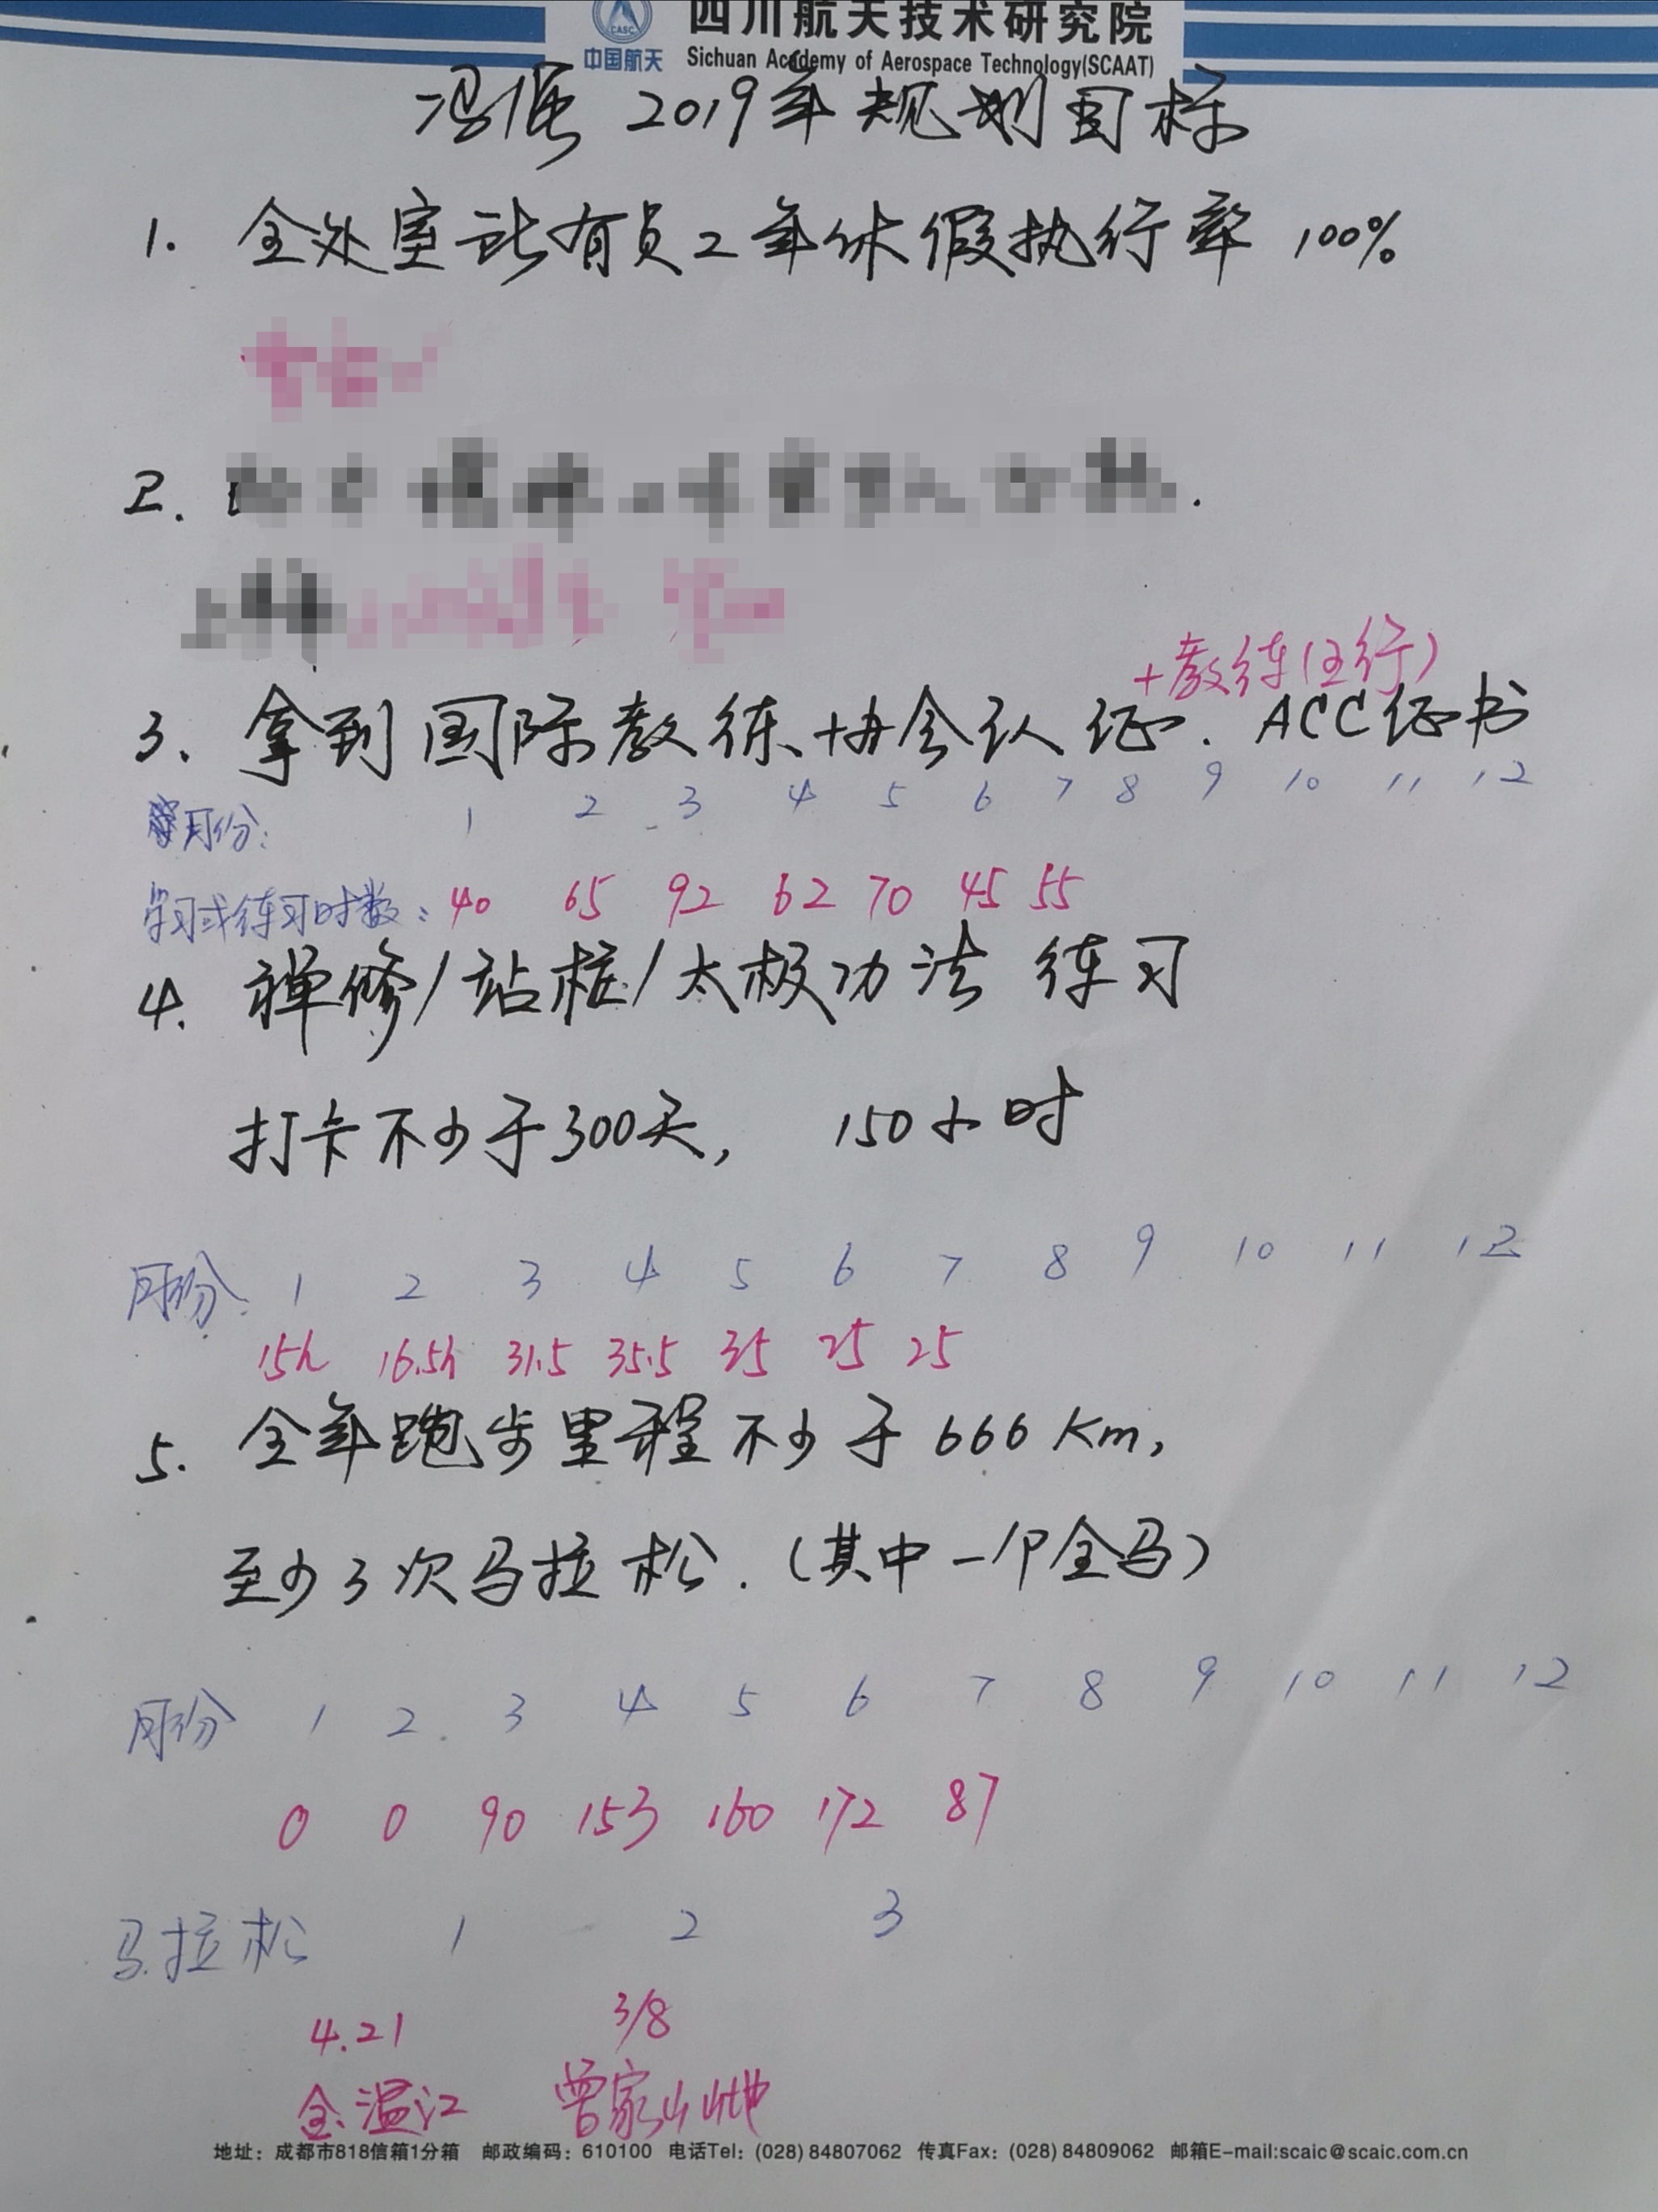 四川航天技术研究院
CASC
中国航天 Sichuan Academy of Aerospace Technology(SCAAT)
冯 2019年规划目标
1. 全处室所有员工年休假执行率 100%
2.
+教练(五行)
3. 拿到国际教练协会认证. ACC证书
月份: 1 2 3 4 5 6 7 8 9 10 11 12
学习或练习时数: 40 65 92 62 70 45 55
4. 禅修/站桩/太极功法 练习
打卡不少于300天, 150小时
月份: 1 2 3 4 5 6 7 8 9 10 11 12
15h 16.5h 31.5 35.5 35 25 25
5. 全年跑步里程不少于 666 Km,
至少3次马拉松. (其中一个全马)
月份 1 2 3 4 5 6 7 8 9 10 11 12
0 0 90 153 160 172 87
马拉松 1 2 3
4.21 3/8
全.温江 曾家山山地
地址：成都市818信箱1分箱 邮政编码：610100 电话Tel：(028) 84807062 传真Fax：(028) 84809062 邮箱E-mail:scaic@scaic.com.cn